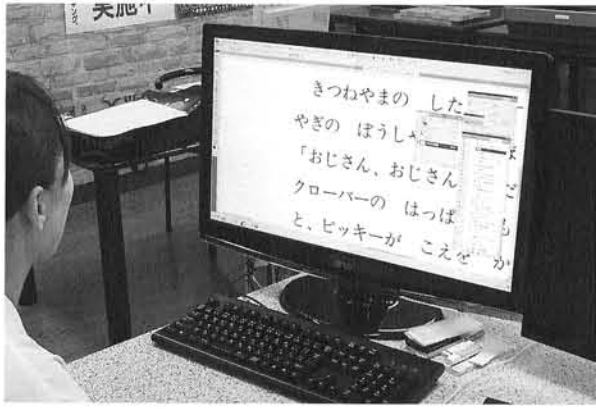 実施
きつねやまの した
やぎの ぼうし
「おじさん、おじさん だ
クローバーの はっぱ も
と、ピッキーが こえを か